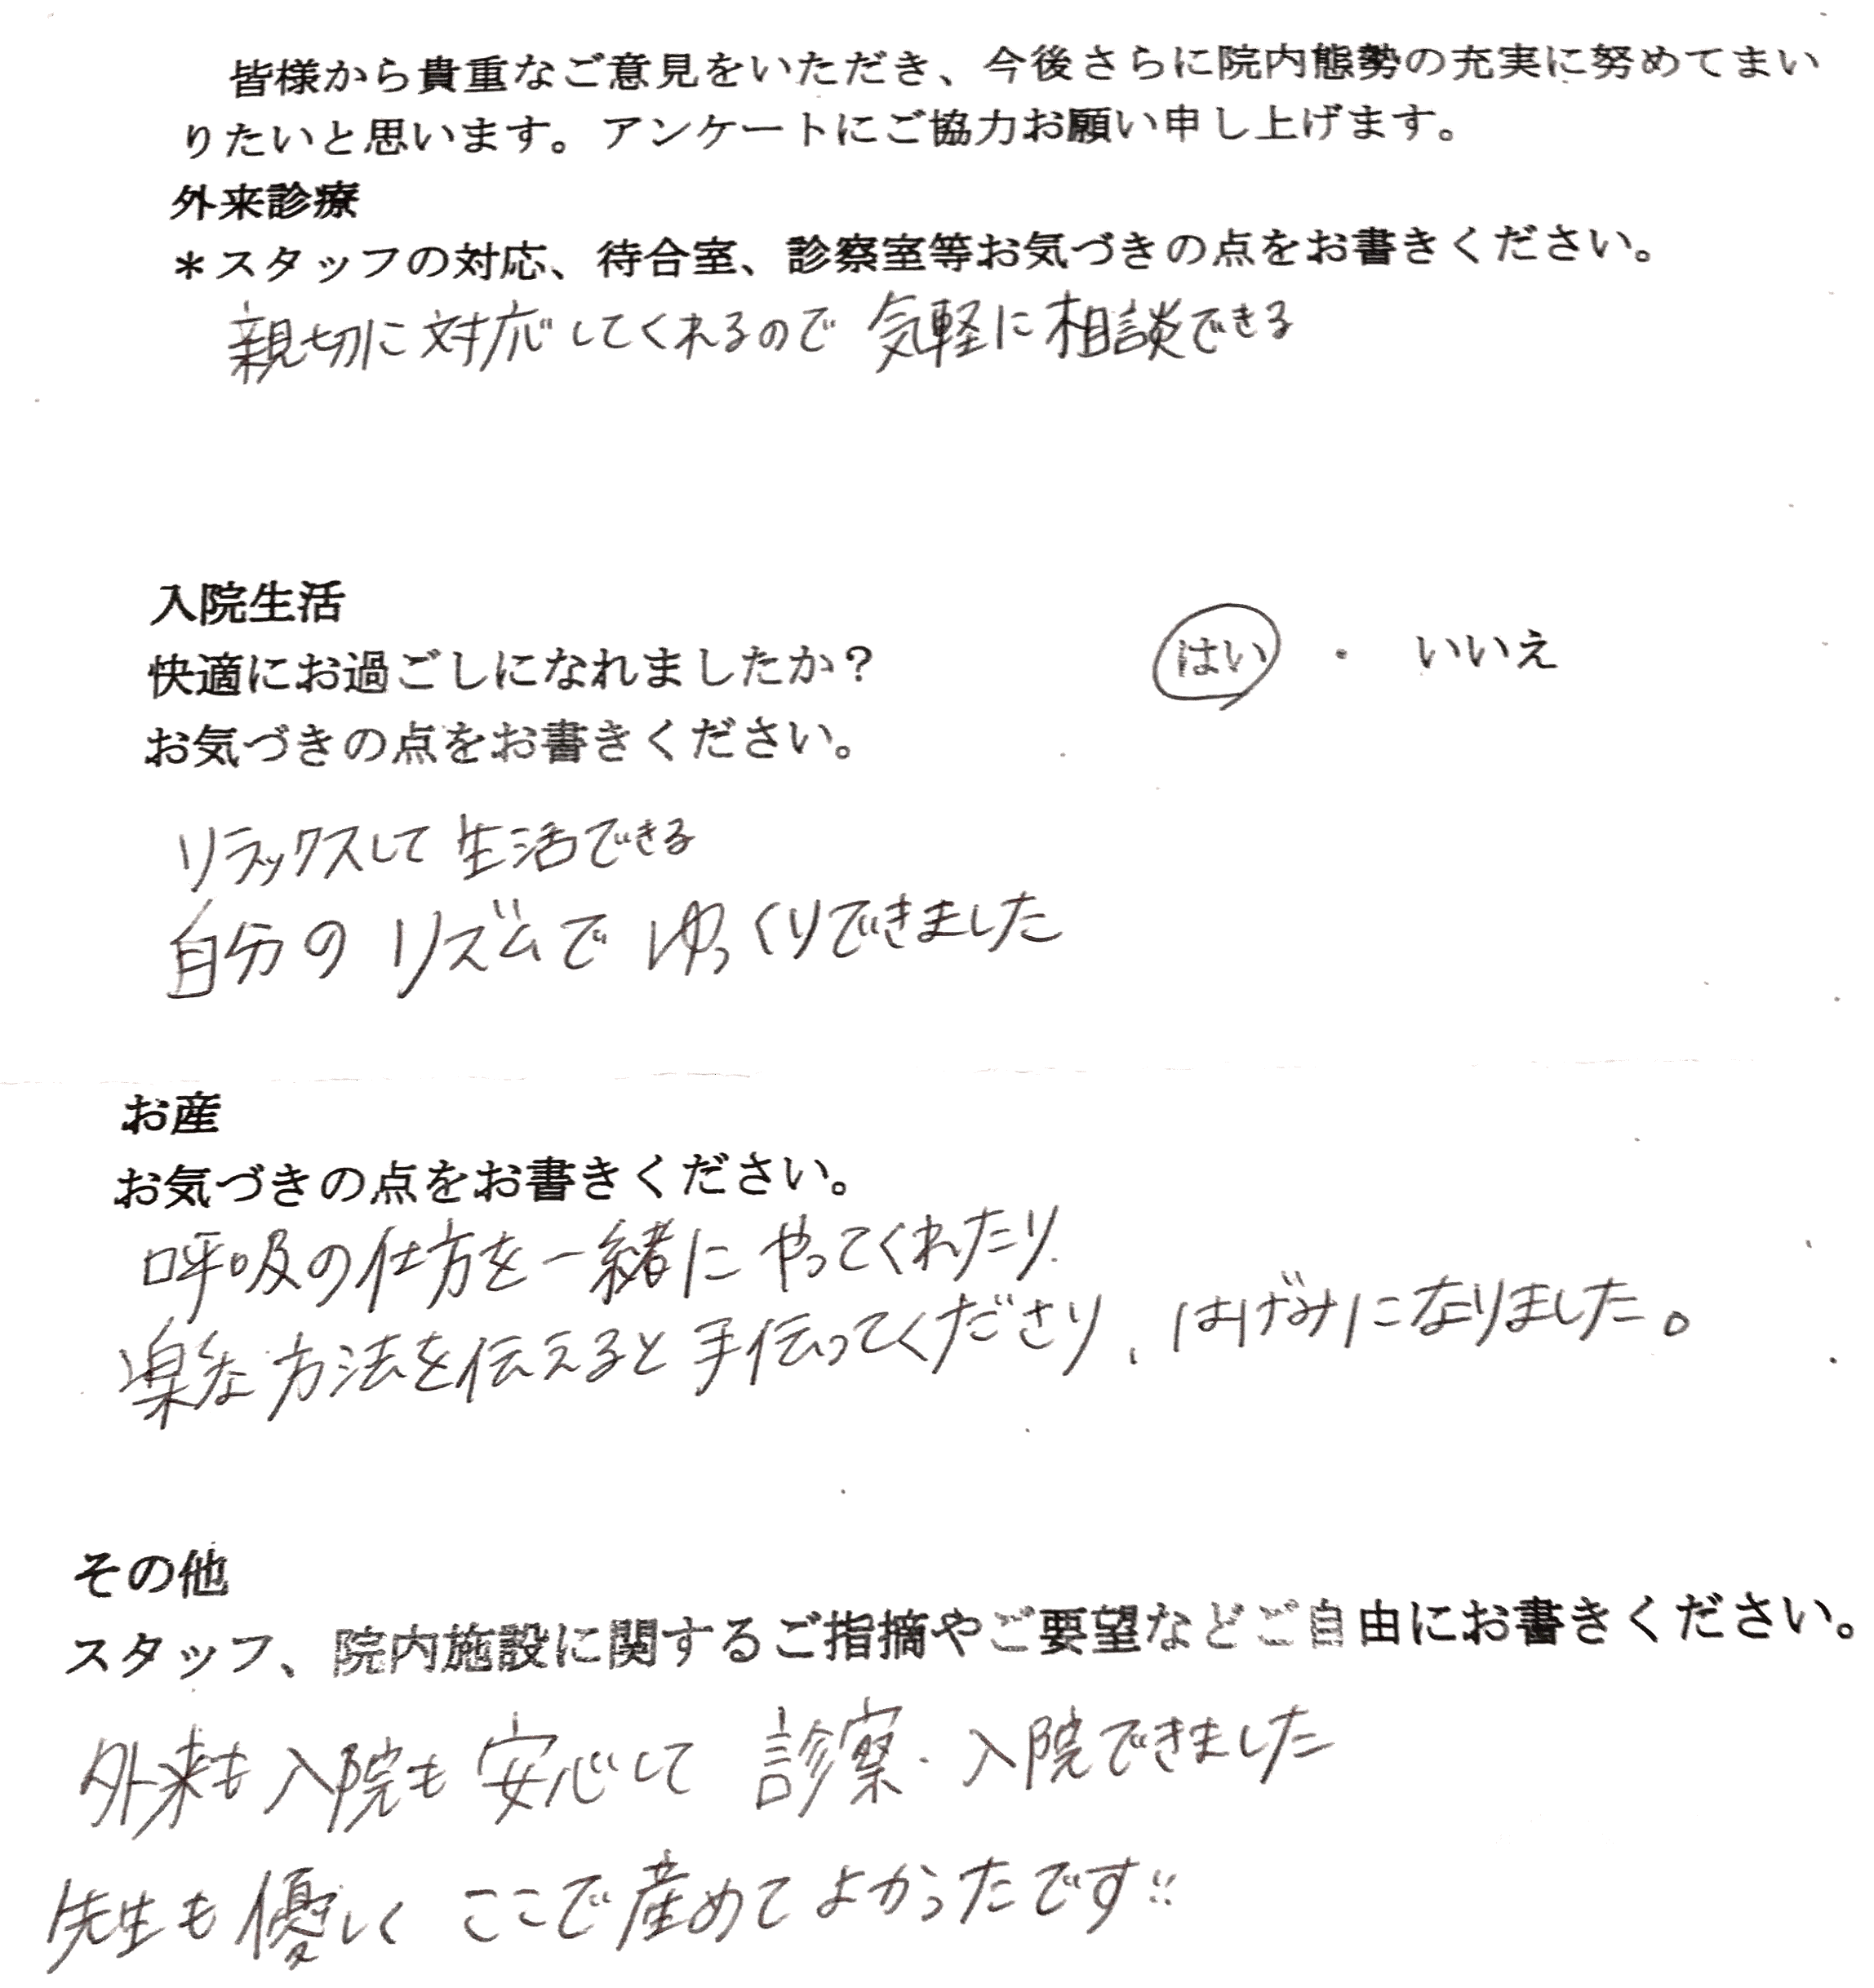 皆様から貴重なご意見をいただき、今後さらに院内態勢の充実に努めてまい
りたいと思います。アンケートにご協力お願い申し上げます。
外来診療
＊スタッフの対応、待合室、診察室等お気づきの点をお書きください。
親切に対応してくれるので気軽に相談できる
入院生活
快適にお過ごしになれましたか？ はい ・ いいえ
お気づきの点をお書きください。
リラックスして生活できる
自分のリズムでゆっくりできました
お産
お気づきの点をお書きください。
呼吸の仕方を一緒にやってくれたり
楽な方法を伝えると手伝ってくださり、はげみになりました。
その他
スタッフ、院内施設に関するご指摘やご要望などご自由にお書きください。
外来も入院も安心して診察・入院できました
先生も優しくここで産めてよかったです!!